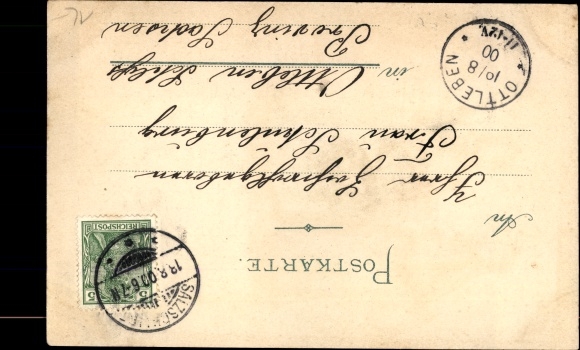 POSTKARTE
An
Frau Schulenburg
in Ottleben Schloß
Provinz Sachsen
REICHSPOST
5
5
OTTLEBEN
10/8
00
11-12V.
18.8.00.6-7N.